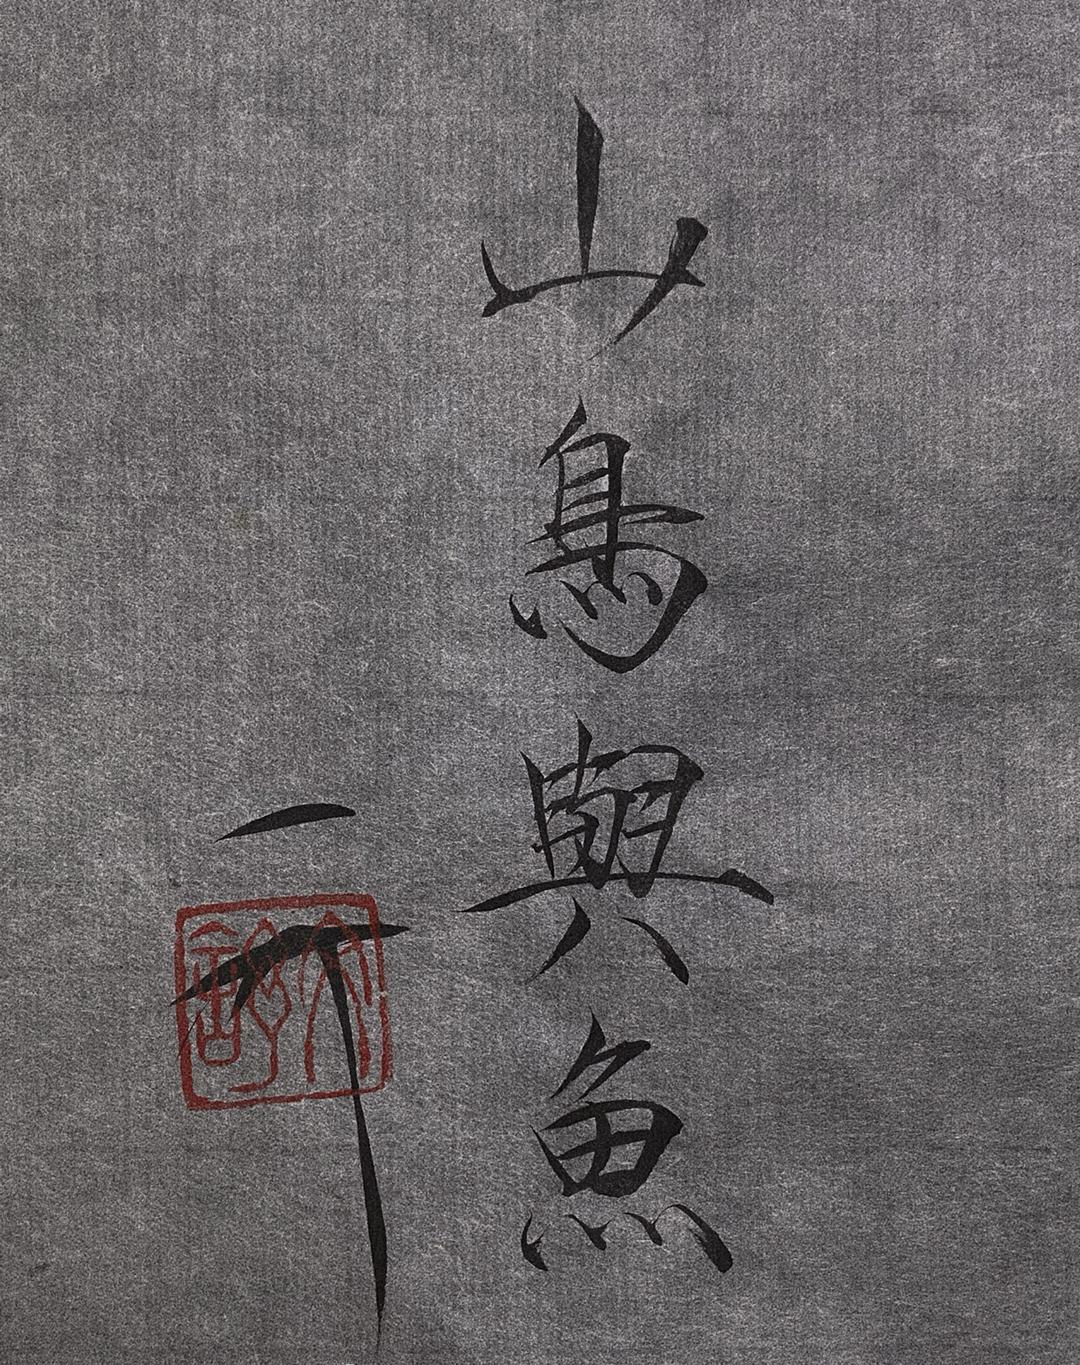 山鳥與魚
一丁